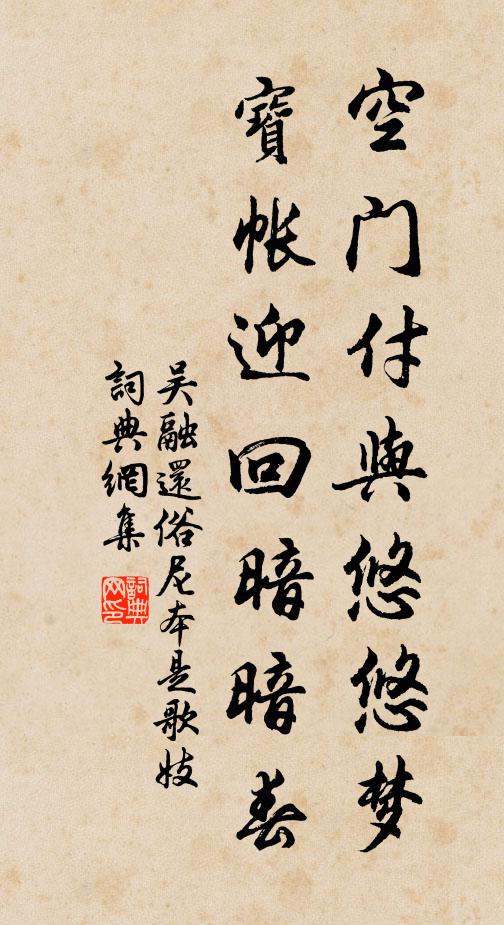 空门付與悠悠梦
寶帳迎回暗暗春
吴融還俗尼本是歌妓
詞典網集
詞典网印